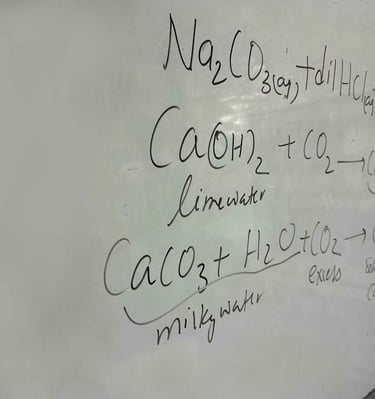 Na₂CO₃(aq) + dil HCl(aq)
Ca(OH)₂ + CO₂ →
limewater
CaCO₃ + H₂O + CO₂ →
excess
milky water